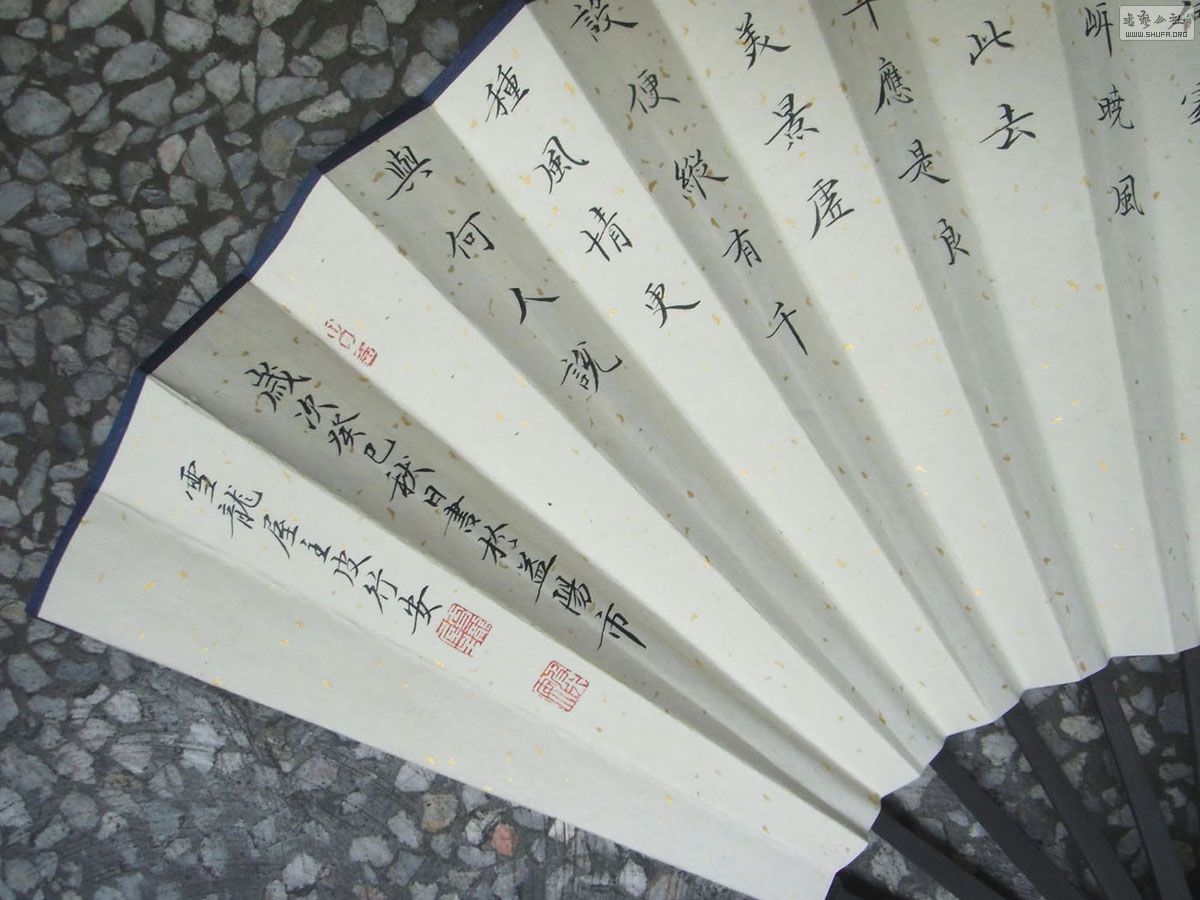 岸暁風
此去
年應是良
美景虛
設便縱有千
種風情更
與何人說
歲次癸巳秋日書於益陽市
雪龍屋主皮行安
書藝公社
WWW.SHUFA.ORG